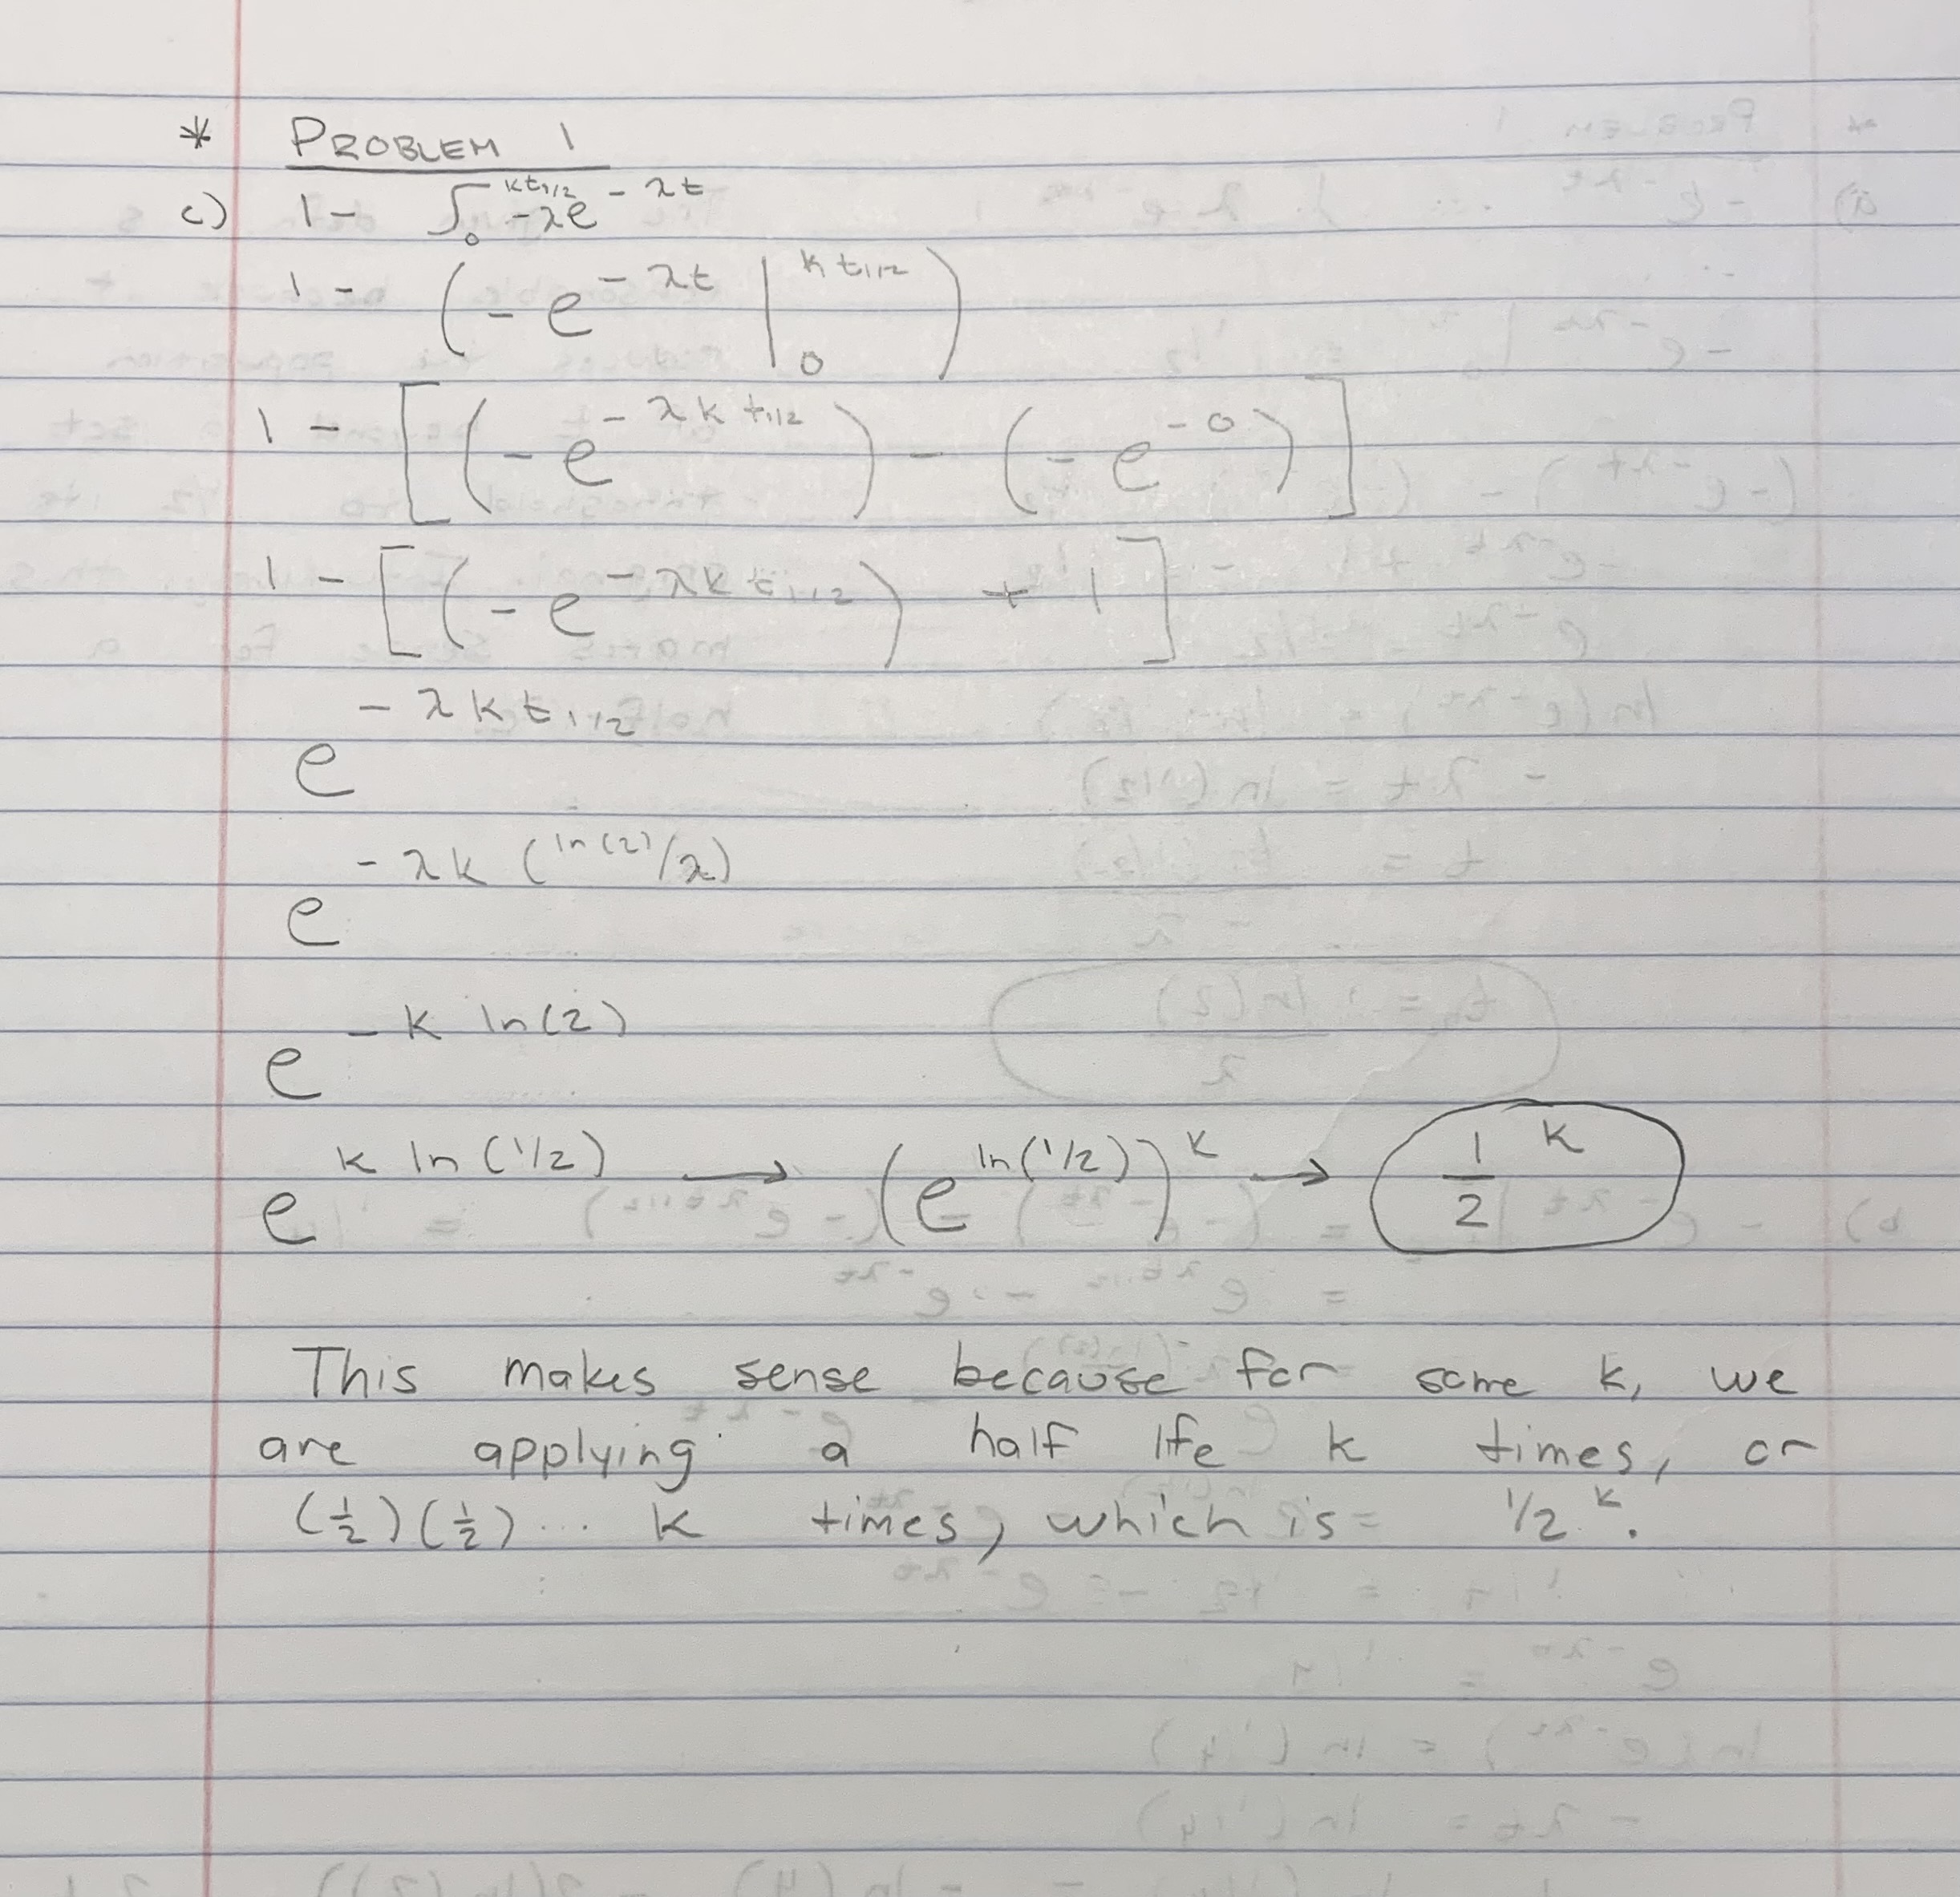 * PROBLEM 1
c) 1 - ∫₀^{kt_{1/2}} -λe^{-λt}
1 - (-e^{-λt} |₀^{kt_{1/2}})
1 - [(-e^{-λkt_{1/2}}) - (-e^{-0})]
1 - [(-e^{-λkt_{1/2}}) + 1]
e^{-λkt_{1/2}}
e^{-λk(ln(2)/λ)}
e^{-k ln(2)}
e^{k ln(1/2)} → (e^{ln(1/2)})^k → 1/2^k
This makes sense because for some k, we
are applying a half life k times, or
(1/2)(1/2)... k times, which is = 1/2^k.